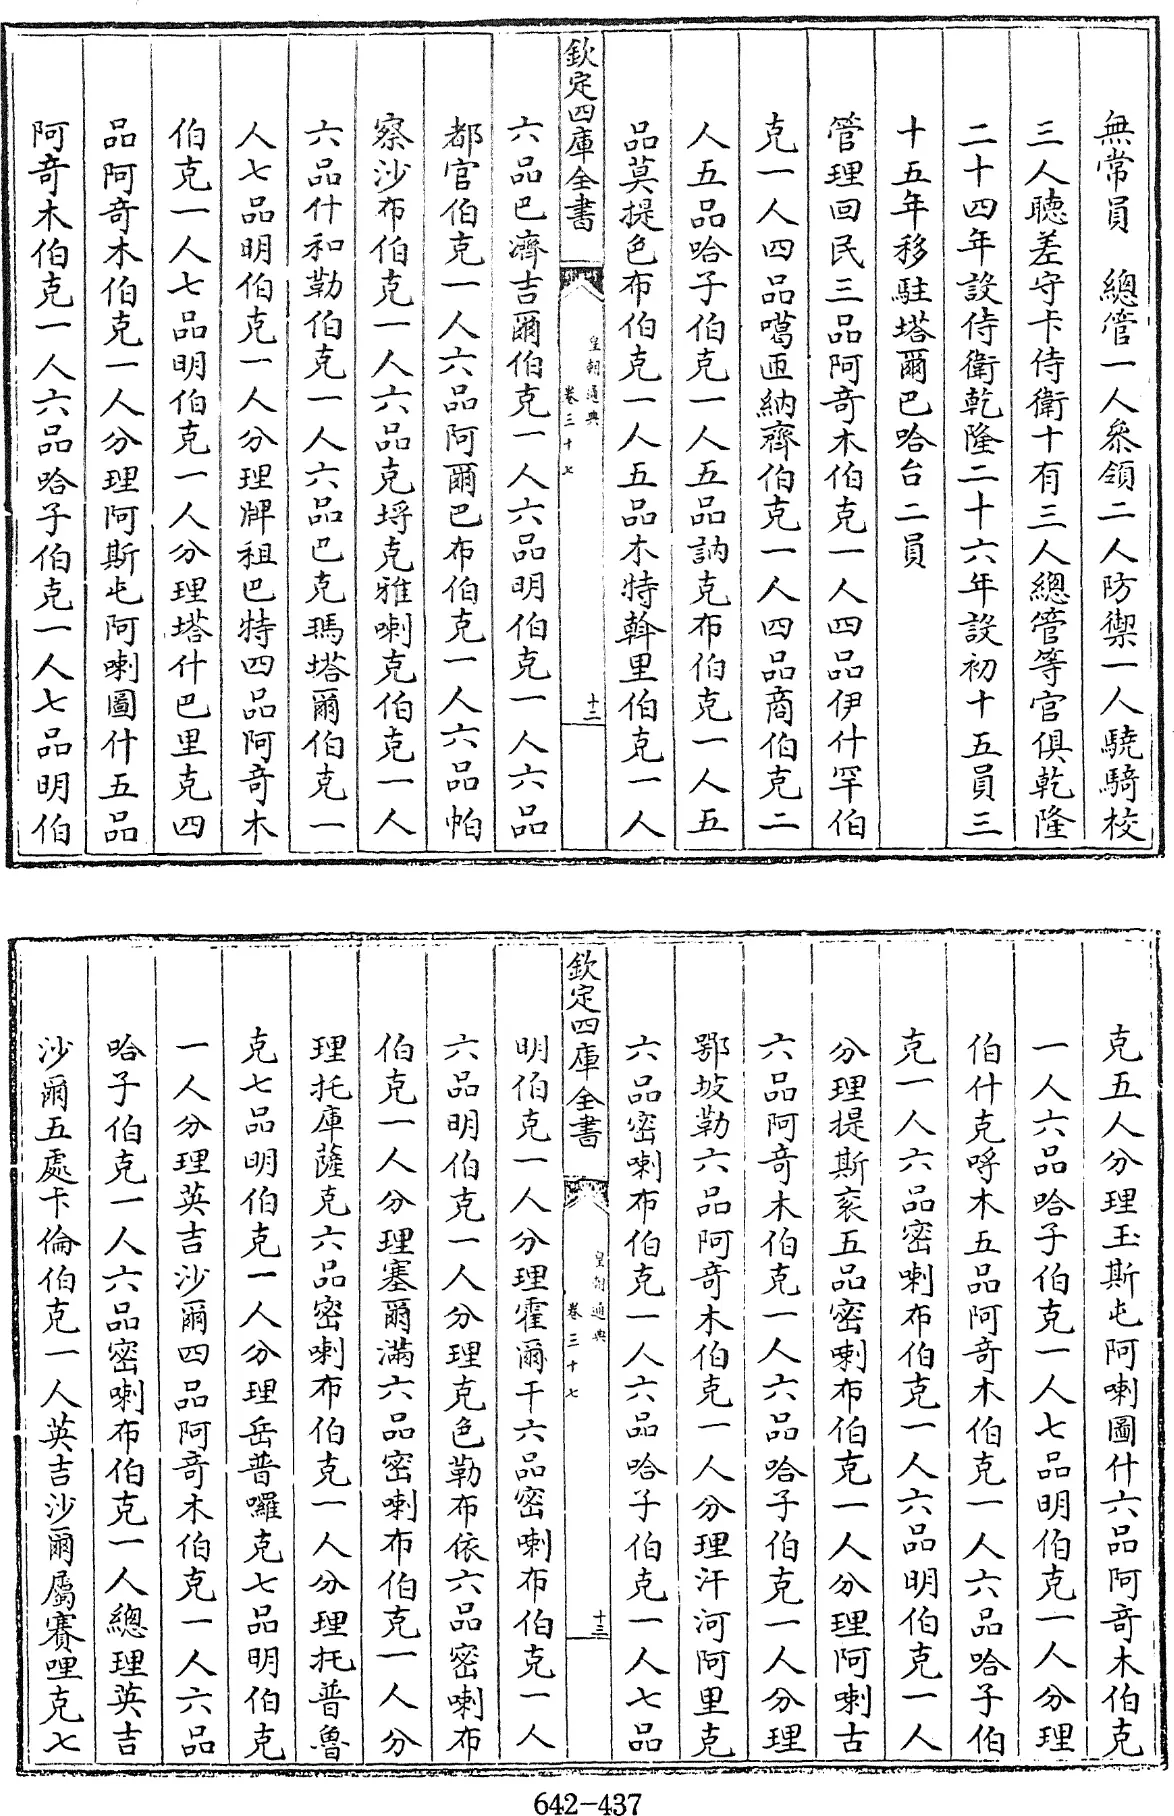 無常員　總管一人叅領二人防禦一人驍騎校
三人聽差守卡侍衛十有三人總管等官俱乾隆
二十四年設侍衛乾隆二十六年設初十五員三
十五年移駐塔爾巴哈台二員
管理回民三品阿竒木伯克一人四品伊什罕伯
克一人四品噶匝納齊伯克一人四品商伯克二
人五品哈子伯克一人五品訥克布伯克一人五
品莫提色布伯克一人五品木特斡里伯克一人
欽定四庫全書
皇朝通典
卷三十七
十二
六品巴濟吉爾伯克一人六品明伯克一人六品
都官伯克一人六品阿爾巴布伯克一人六品帕
察沙布伯克一人六品克埒克雅喇克伯克一人
六品什和勒伯克一人六品巴克瑪塔爾伯克一
人七品明伯克一人分理牌租巴特四品阿竒木
伯克一人七品明伯克一人分理塔什巴里克四
品阿竒木伯克一人分理阿斯屯阿喇圖什五品
阿竒木伯克一人六品哈子伯克一人七品明伯
克五人分理玉斯屯阿喇圖什六品阿竒木伯克
一人六品哈子伯克一人七品明伯克一人分理
伯什克呼木五品阿竒木伯克一人六品哈子伯
克一人六品密喇布伯克一人六品明伯克一人
分理提斯衮五品密喇布伯克一人分理阿喇古
六品阿竒木伯克一人六品哈子伯克一人分理
鄂坡勒六品阿竒木伯克一人分理汗河阿里克
六品密喇布伯克一人六品哈子伯克一人七品
欽定四庫全書
皇朝通典
卷三十七
十三
明伯克一人分理霍爾干六品密喇布伯克一人
六品明伯克一人分理克色勒布依六品密喇布
伯克一人分理塞爾滿六品密喇布伯克一人分
理托庫薩克六品密喇布伯克一人分理托普魯
克七品明伯克一人分理岳普囉克七品明伯克
一人分理英吉沙爾四品阿竒木伯克一人六品
哈子伯克一人六品密喇布伯克一人總理英吉
沙爾五處卡倫伯克一人英吉沙爾屬賽哩克七
642-437